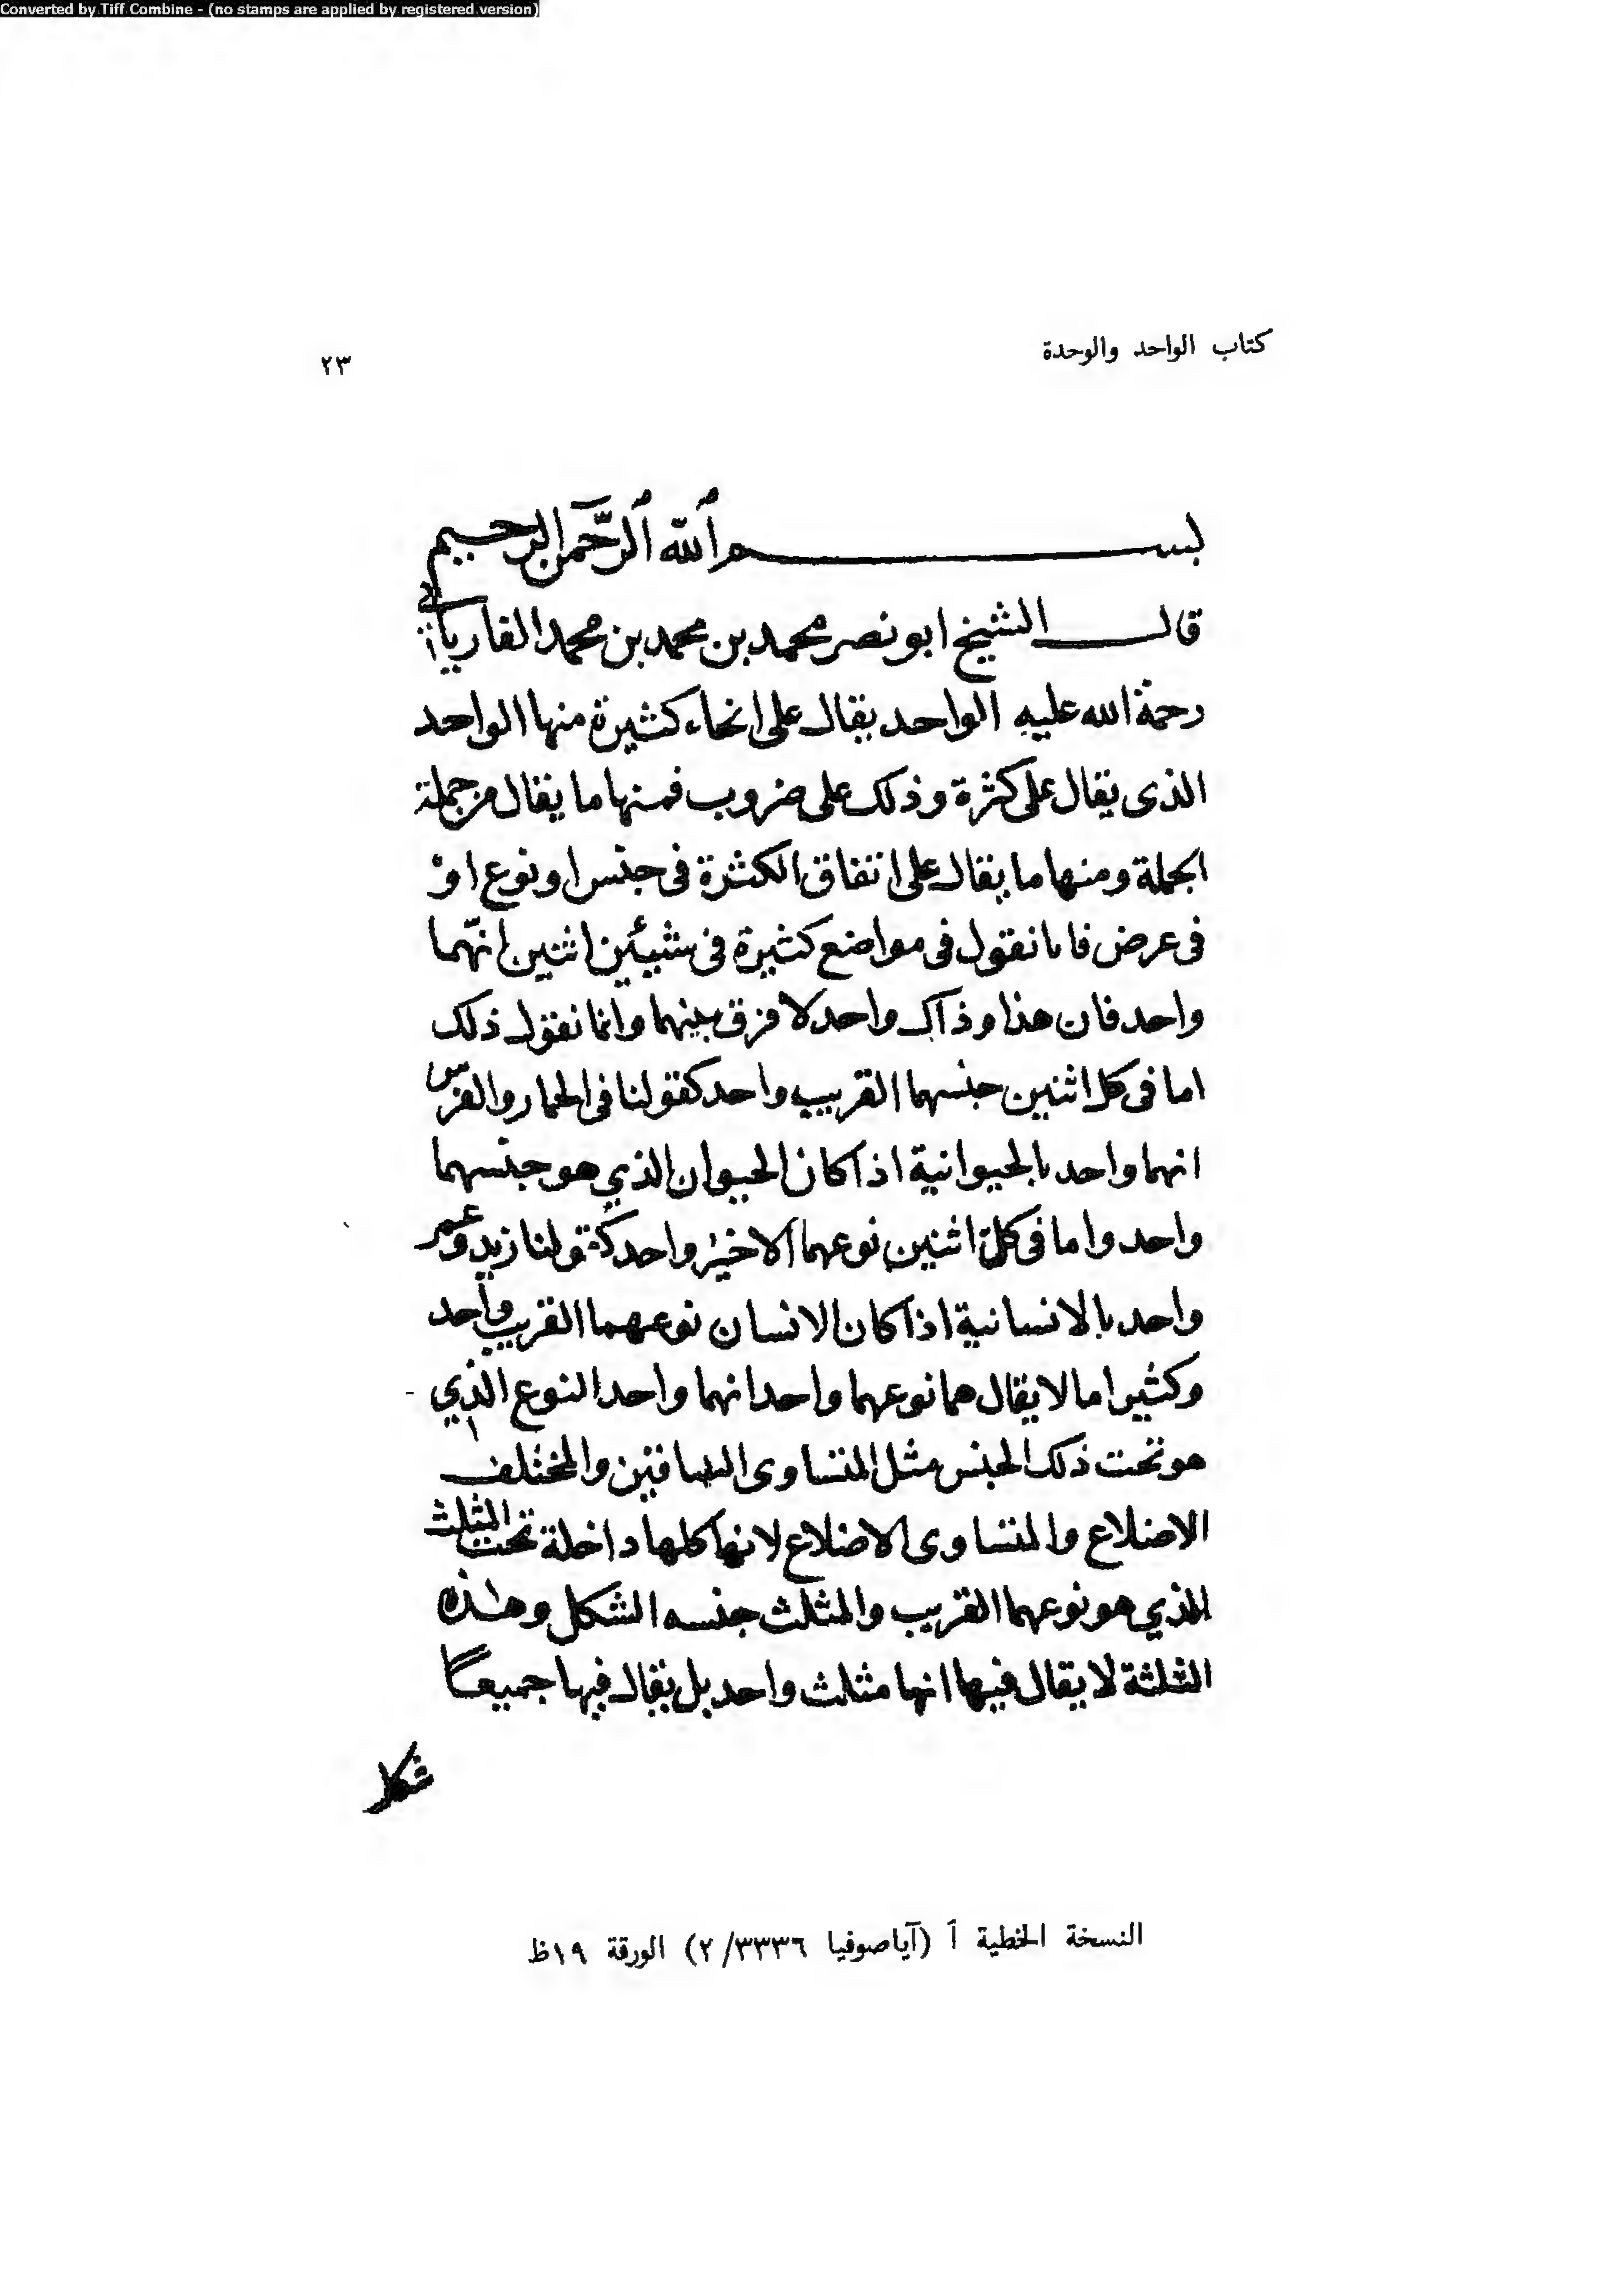 Converted by Tiff Combine - (no stamps are applied by registered version)
كتاب الواحد والوحدة
٢٣
بسم ٱلله ٱلرّحمن الرحيم
قال الشيخ ابو نصر محمد بن محمد بن محمد الفارابي
رحمة الله عليه الواحد يقال على انحاء كثيرة منها الواحد
الذى يقال على كثرة وذلك على ضروب فمنها ما يقال من جملة
الجملة ومنها ما يقال على اتفاق الكثرة فى جنس او نوع او
فى عرض فانا نقول فى مواضع كثيرة فى شيئين اثنين انّهما
واحد فان هذا وذاك واحد لا فرق بينهما وانما نقول ذلك
اما فى كل اثنين جنسهما القريب واحد كقولنا فى الحمار والفرس
انهما واحد بالحيوانية اذا كان الحيوان الذي هو جنسهما
واحد واما فى كلّ اثنين نوعهما الاخير واحد كقولنا زيد وعمر
واحد بالانسانية اذا كان الانسان نوعهما القريب واحد
وكثيرا ما لا يقال هما نوعهما واحد انهما واحد النوع الذي
هو تحت ذلك الجنس مثل المتساوى الساقين والمختلف
الاضلاع والمتساوى الاضلاع لانها كلها داخلة تحت المثلث
الذي هو نوعهما القريب والمثلث جنسه الشكل وهذه
الثلثة لا يقال فيها انها مثلث واحد بل يقال فيها جميعًا
شكل
النسخة الخطية أ (آياصوفيا ٣٣٣٦/ ٢) الورقة ١٩ظ